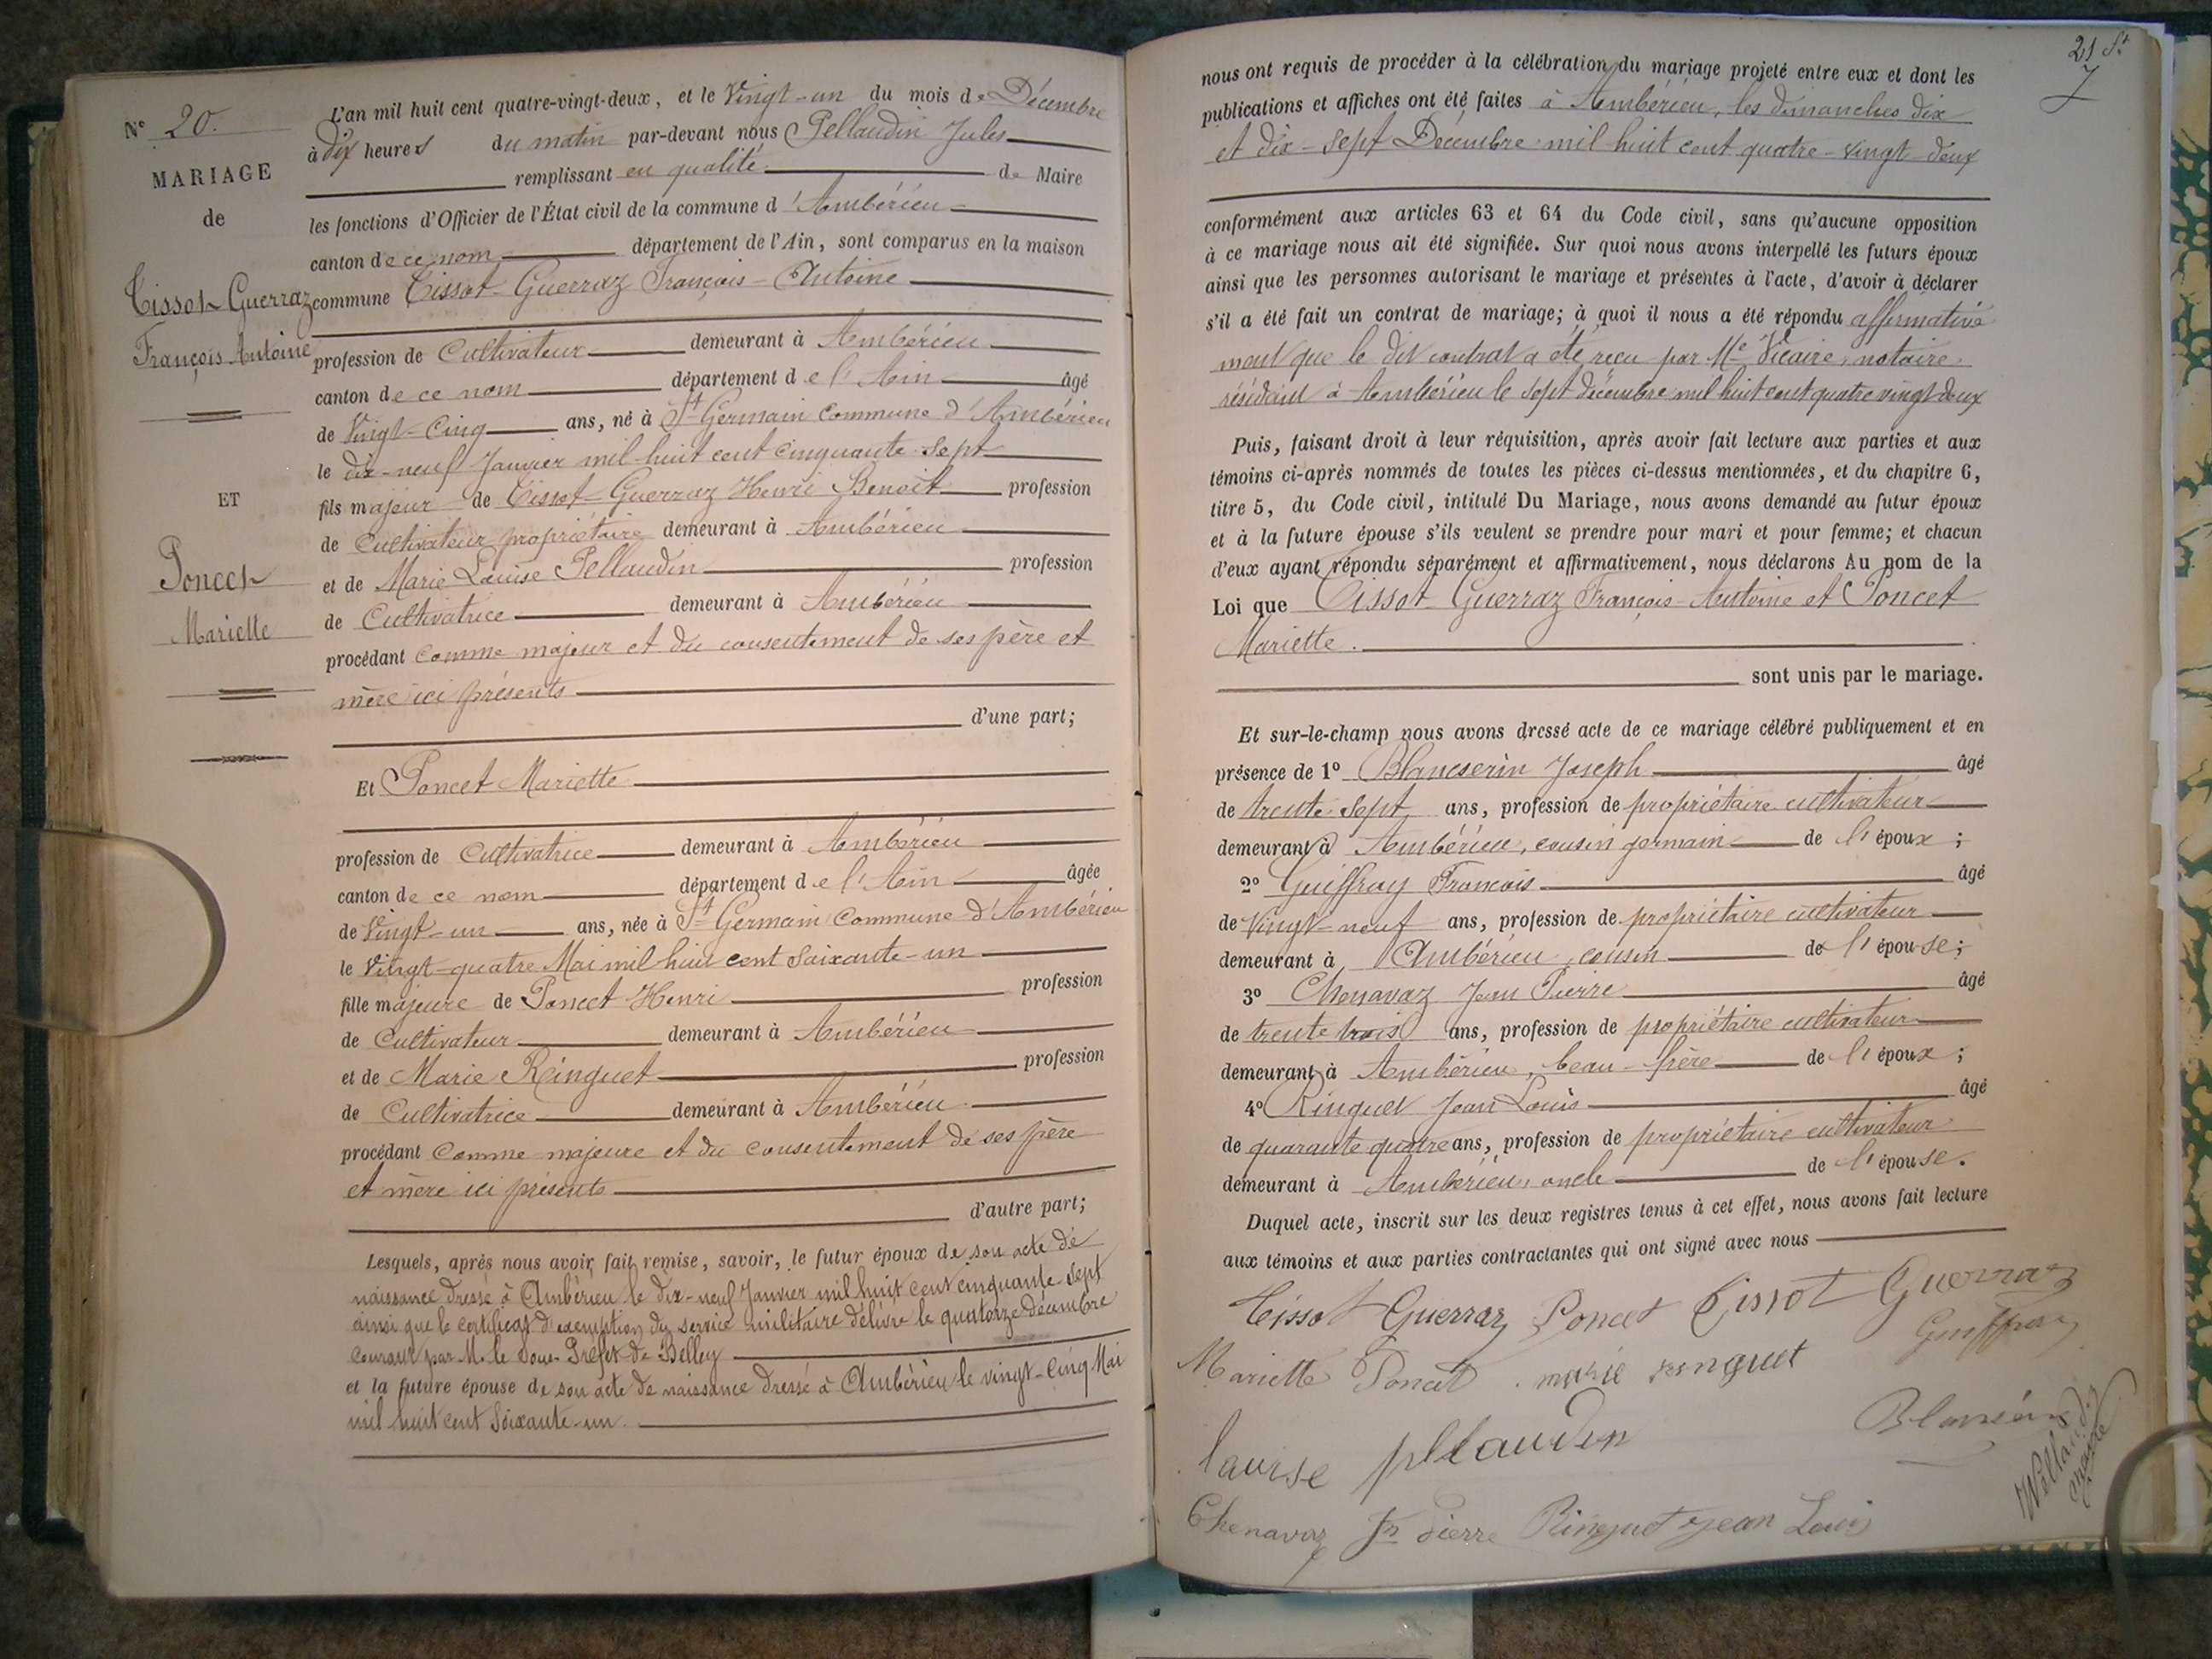 N° 20.
MARIAGE
de
Tissot-Guerraz
François Antoine
ET
Poncet
Mariette
L'an mil huit cent quatre-vingt-deux, et le Vingt-un du mois de Décembre
à dix heures du matin par-devant nous Pellaudin Jules
remplissant en qualité de Maire
les fonctions d'Officier de l'État civil de la commune d'Ambérieu
canton de ce nom département de l'Ain, sont comparus en la maison
commune Tissot-Guerraz François-Antoine
profession de Cultivateur demeurant à Ambérieu
canton de ce nom département de l'Ain âgé
de Vingt-Cinq ans, né à St Germain Commune d'Ambérieu
le dix-neuf Janvier mil huit cent cinquante-sept
fils majeur de Tissot-Guerraz Henri Benoit profession
de Cultivateur propriétaire demeurant à Ambérieu
et de Marie Louise Pellaudin profession
de Cultivatrice demeurant à Ambérieu
procédant comme majeur et du consentement de ses père et
mère ici présents
d'une part;
Et Poncet Mariette
profession de Cultivatrice demeurant à Ambérieu
canton de ce nom département de l'Ain âgée
de Vingt-un ans, née à St Germain Commune d'Ambérieu
le Vingt-quatre Mai mil huit cent Soixante-un
fille majeure de Poncet Henri profession
de Cultivateur demeurant à Ambérieu
et de Marie Ringuet profession
de Cultivatrice demeurant à Ambérieu
procédant Comme majeure et du consentement de ses père
et mère ici présents
d'autre part;
Lesquels, après nous avoir fait remise, savoir, le futur époux de son acte de
naissance dressé à Ambérieu le dix-neuf Janvier mil huit cent cinquante-sept
ainsi que le certificat d'exemption du service militaire délivré le quatorze décembre
courant par M. le Sous-Préfet de Belley
et la future épouse de son acte de naissance dressé à Ambérieu le vingt-cinq Mai
mil huit cent Soixante-un.
21 St
nous ont requis de procéder à la célébration du mariage projeté entre eux et dont les
publications et affiches ont été faites à Ambérieu, les dimanches dix
et dix-sept Décembre mil huit cent quatre-vingt-deux
conformément aux articles 63 et 64 du Code civil, sans qu'aucune opposition
à ce mariage nous ait été signifiée. Sur quoi nous avons interpellé les futurs époux
ainsi que les personnes autorisant le mariage et présentes à l'acte, d'avoir à déclarer
s'il a été fait un contrat de mariage; à quoi il nous a été répondu affirmative
ment que le dit contrat a été reçu par Me Vicaire, notaire
résidant à Ambérieu le sept décembre mil huit cent quatre vingt deux
Puis, faisant droit à leur réquisition, après avoir fait lecture aux parties et aux
témoins ci-après nommés de toutes les pièces ci-dessus mentionnées, et du chapitre 6,
titre 5, du Code civil, intitulé Du Mariage, nous avons demandé au futur époux
et à la future épouse s'ils veulent se prendre pour mari et pour femme; et chacun
d'eux ayant répondu séparément et affirmativement, nous déclarons Au nom de la
Loi que Tissot-Guerraz François-Antoine et Poncet
Mariette.
sont unis par le mariage.
Et sur-le-champ nous avons dressé acte de ce mariage célébré publiquement et en
présence de 1° Blancserin Joseph âgé
de trente-sept ans, profession de propriétaire cultivateur
demeurant à Ambérieu, cousin germain de l'époux;
2° Guiffray François âgé
de Vingt-neuf ans, profession de propriétaire cultivateur
demeurant à Ambérieu, cousin de l'épouse;
3° Chenavaz Jean Pierre âgé
de trente trois ans, profession de propriétaire cultivateur
demeurant à Ambérieu, beau-frère de l'époux;
4° Ringuet Jean Louis âgé
de quarante quatre ans, profession de propriétaire cultivateur
demeurant à Ambérieu, oncle de l'épouse.
Duquel acte, inscrit sur les deux registres tenus à cet effet, nous avons fait lecture
aux témoins et aux parties contractantes qui ont signé avec nous
Tissot Guerraz Poncet Tissot Guerraz
Guiffray
Mariette Poncet marie renguet
louise pllaudin
Chenavaz Jn Pierre Ringuet Jean Louis
maire